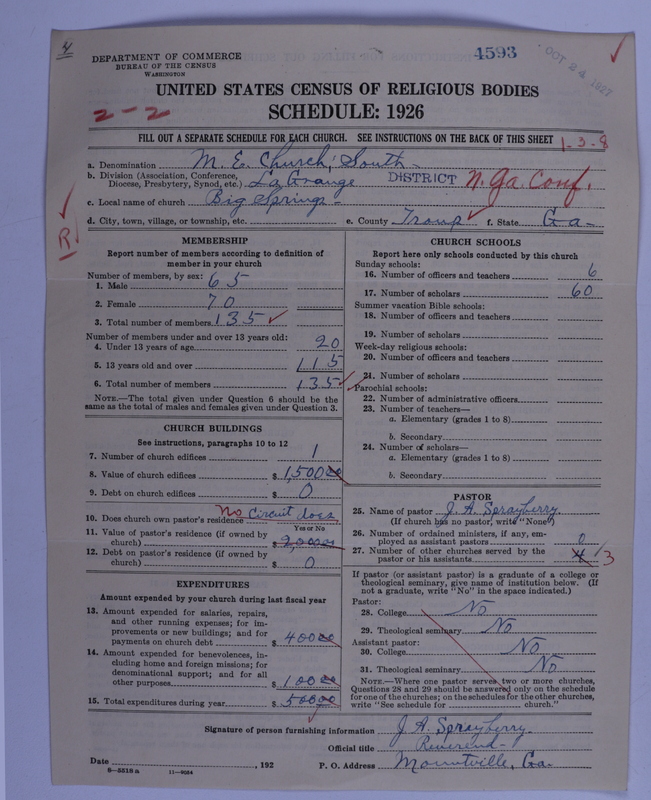 4
DEPARTMENT OF COMMERCE
BUREAU OF THE CENSUS
WASHINGTON
4593
OCT 24 1927
UNITED STATES CENSUS OF RELIGIOUS BODIES
2-2
SCHEDULE: 1926
FILL OUT A SEPARATE SCHEDULE FOR EACH CHURCH. SEE INSTRUCTIONS ON THE BACK OF THIS SHEET
1-3-8
a. Denomination M. E. Church, South
b. Division (Association, Conference, Diocese, Presbytery, Synod, etc.) La Grange DISTRICT N. Ga. Conf.
c. Local name of church Big Springs
d. City, town, village, or township, etc. e. County Troup f. State Ga
R
MEMBERSHIP
Report number of members according to definition of
member in your church
Number of members, by sex:
1. Male 65
2. Female 70
3. Total number of members 135
Number of members under and over 13 years old:
4. Under 13 years of age 20
5. 13 years old and over 115
6. Total number of members 135
NOTE.—The total given under Question 6 should be the
same as the total of males and females given under Question 3.
CHURCH BUILDINGS
See instructions, paragraphs 10 to 12
7. Number of church edifices 1
8. Value of church edifices $ 1,50000
9. Debt on church edifices $ 0
10. Does church own pastor's residence No Circuit does
Yes or No
11. Value of pastor's residence (if owned by
church) $ 200000
12. Debt on pastor's residence (if owned by
church) $ 0
EXPENDITURES
Amount expended by your church during last fiscal year
13. Amount expended for salaries, repairs,
and other running expenses; for im-
provements or new buildings; and for
payments on church debt $ 40000
14. Amount expended for benevolences, in-
cluding home and foreign missions; for
denominational support; and for all
other purposes $ 10000
15. Total expenditures during year $ 50000
CHURCH SCHOOLS
Report here only schools conducted by this church
Sunday schools:
16. Number of officers and teachers 6
17. Number of scholars 60
Summer vacation Bible schools:
18. Number of officers and teachers
19. Number of scholars
Week-day religious schools:
20. Number of officers and teachers
21. Number of scholars
Parochial schools:
22. Number of administrative officers
23. Number of teachers—
a. Elementary (grades 1 to 8)
b. Secondary
24. Number of scholars—
a. Elementary (grades 1 to 8)
b. Secondary
PASTOR
25. Name of pastor J. A. Sprayberry
(If church has no pastor, write "None")
26. Number of ordained ministers, if any, em-
ployed as assistant pastors 0
27. Number of other churches served by the
pastor or his assistants 4 3
If pastor (or assistant pastor) is a graduate of a college or
theological seminary, give name of institution below. (If
not a graduate, write "No" in the space indicated.)
Pastor:
28. College No
29. Theological seminary No
Assistant pastor:
30. College No
31. Theological seminary No
NOTE.—Where one pastor serves two or more churches,
Questions 28 and 29 should be answered only on the schedule
for one of the churches; on the schedules for the other churches,
write "See schedule for church."
Signature of person furnishing information J. A. Sprayberry
Official title Reverend
Date , 192 P. O. Address Mountville, Ga.
8—5518a 11—9034